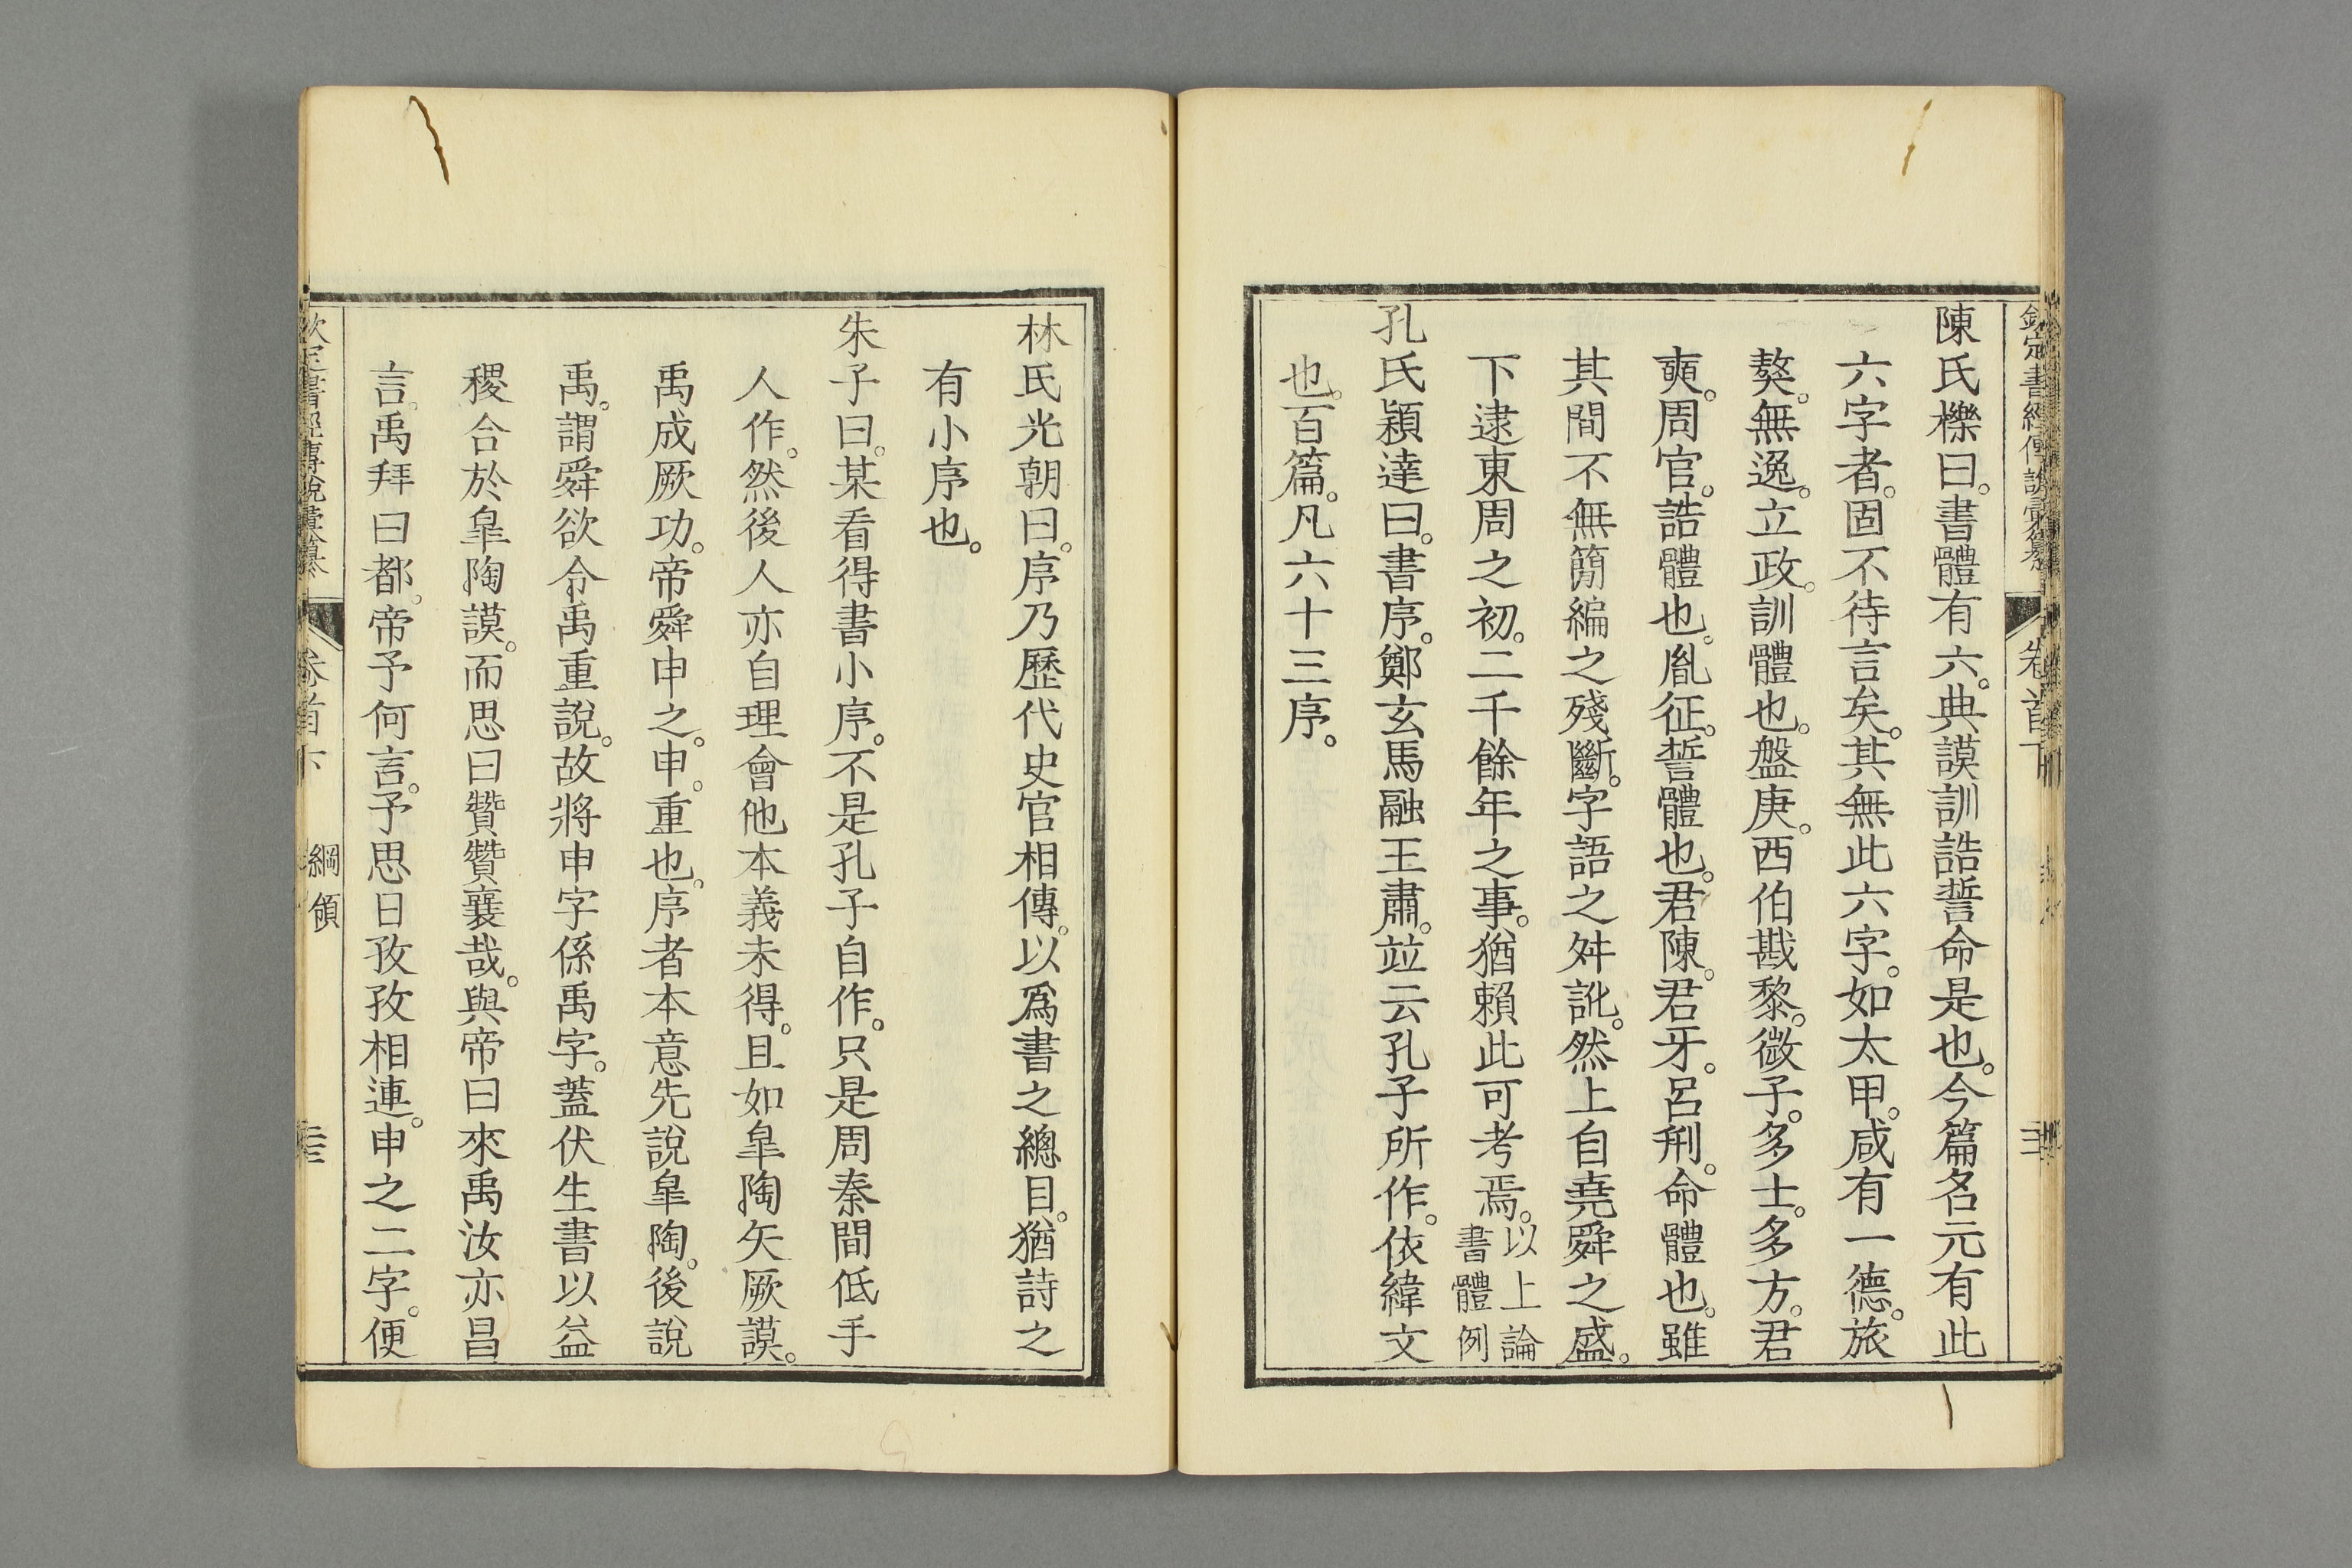 欽定書經傳說彙纂 卷首下
陳氏櫟曰。書體有六。典謨訓誥誓命是也。今篇名元有此
六字者。固不待言矣。其無此六字。如太甲。咸有一德。旅
獒。無逸。立政。訓體也。盤庚。西伯戡黎。微子。多士。多方。君
奭。周官。誥體也。胤征。誓體也。君陳。君牙。呂刑。命體也。雖
其間不無簡編之殘斷。字語之舛訛。然上自堯舜之盛。
下逮東周之初。二千餘年之事。猶賴此可考焉。以上論書體例
孔氏穎達曰。書序。鄭玄馬融王肅。竝云孔子所作。依緯文
也。百篇。凡六十三序。
林氏光朝曰。序乃歷代史官相傳。以爲書之總目。猶詩之
有小序也。
朱子曰。某看得書小序。不是孔子自作。只是周秦間低手
人作。然後人亦自理會他本義未得。且如皐陶矢厥謨。
禹成厥功。帝舜申之。申。重也。序者本意先說皐陶。後說
禹。謂舜欲令禹重說。故將申字係禹字。蓋伏生書以益
稷合於皐陶謨。而思曰贊贊襄哉。與帝曰來禹汝亦昌
言。禹拜曰都。帝予何言。予思日孜孜相連。申之二字。便
欽定書經傳說彙纂 卷首下 綱領